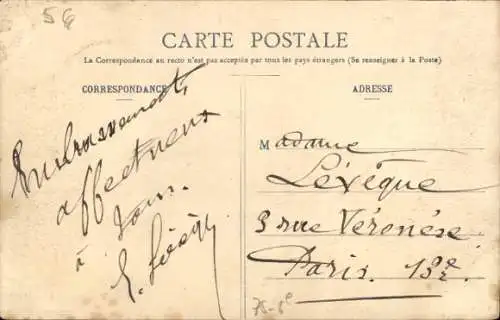 56
CARTE POSTALE
La Correspondance au recto n'est pas acceptée par tous les pays étrangers (Se renseigner à la Poste)
CORRESPONDANCE
Embrassements
affectueux
à tous.
E. Lévêq
ADRESSE
Madame
Lévêque
3 rue Véronèse
Paris. 13e